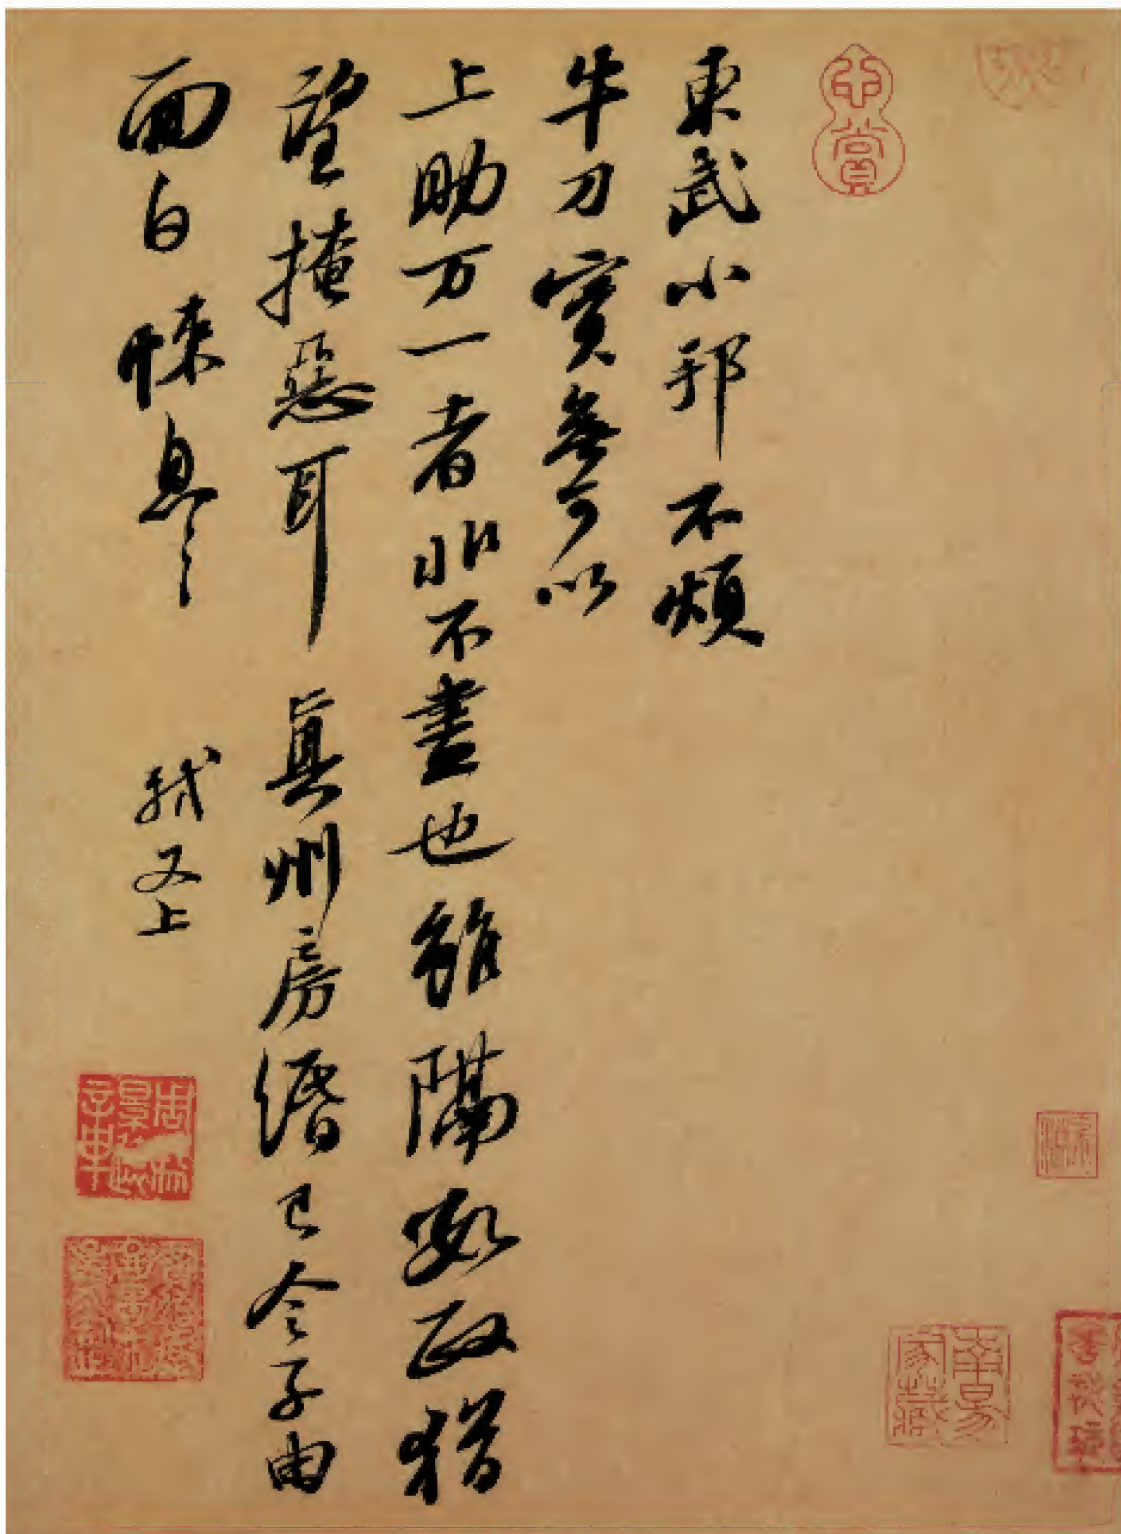 東武小邦不煩
牛刀實無可以
上助万一者非不盡也雖隔數政猶
望掩惡耳真州房緡已令子由
面白悚息〻
軾又上
賞
家藏